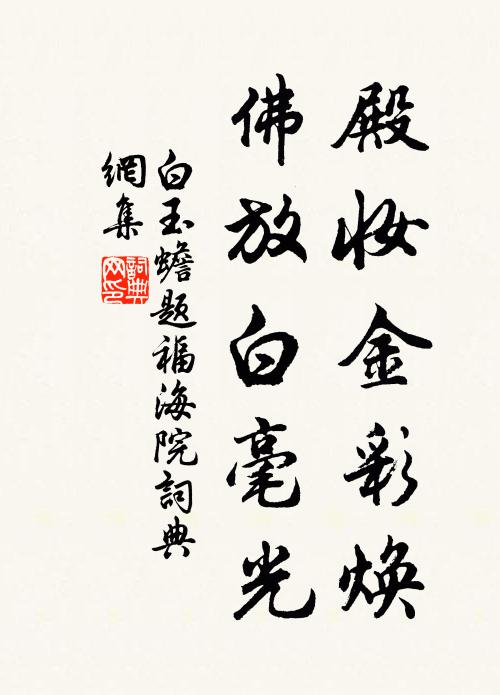 殿妆金彩焕
佛放白毫光
白玉蟾题福海院詞典
網集
詞典
网印